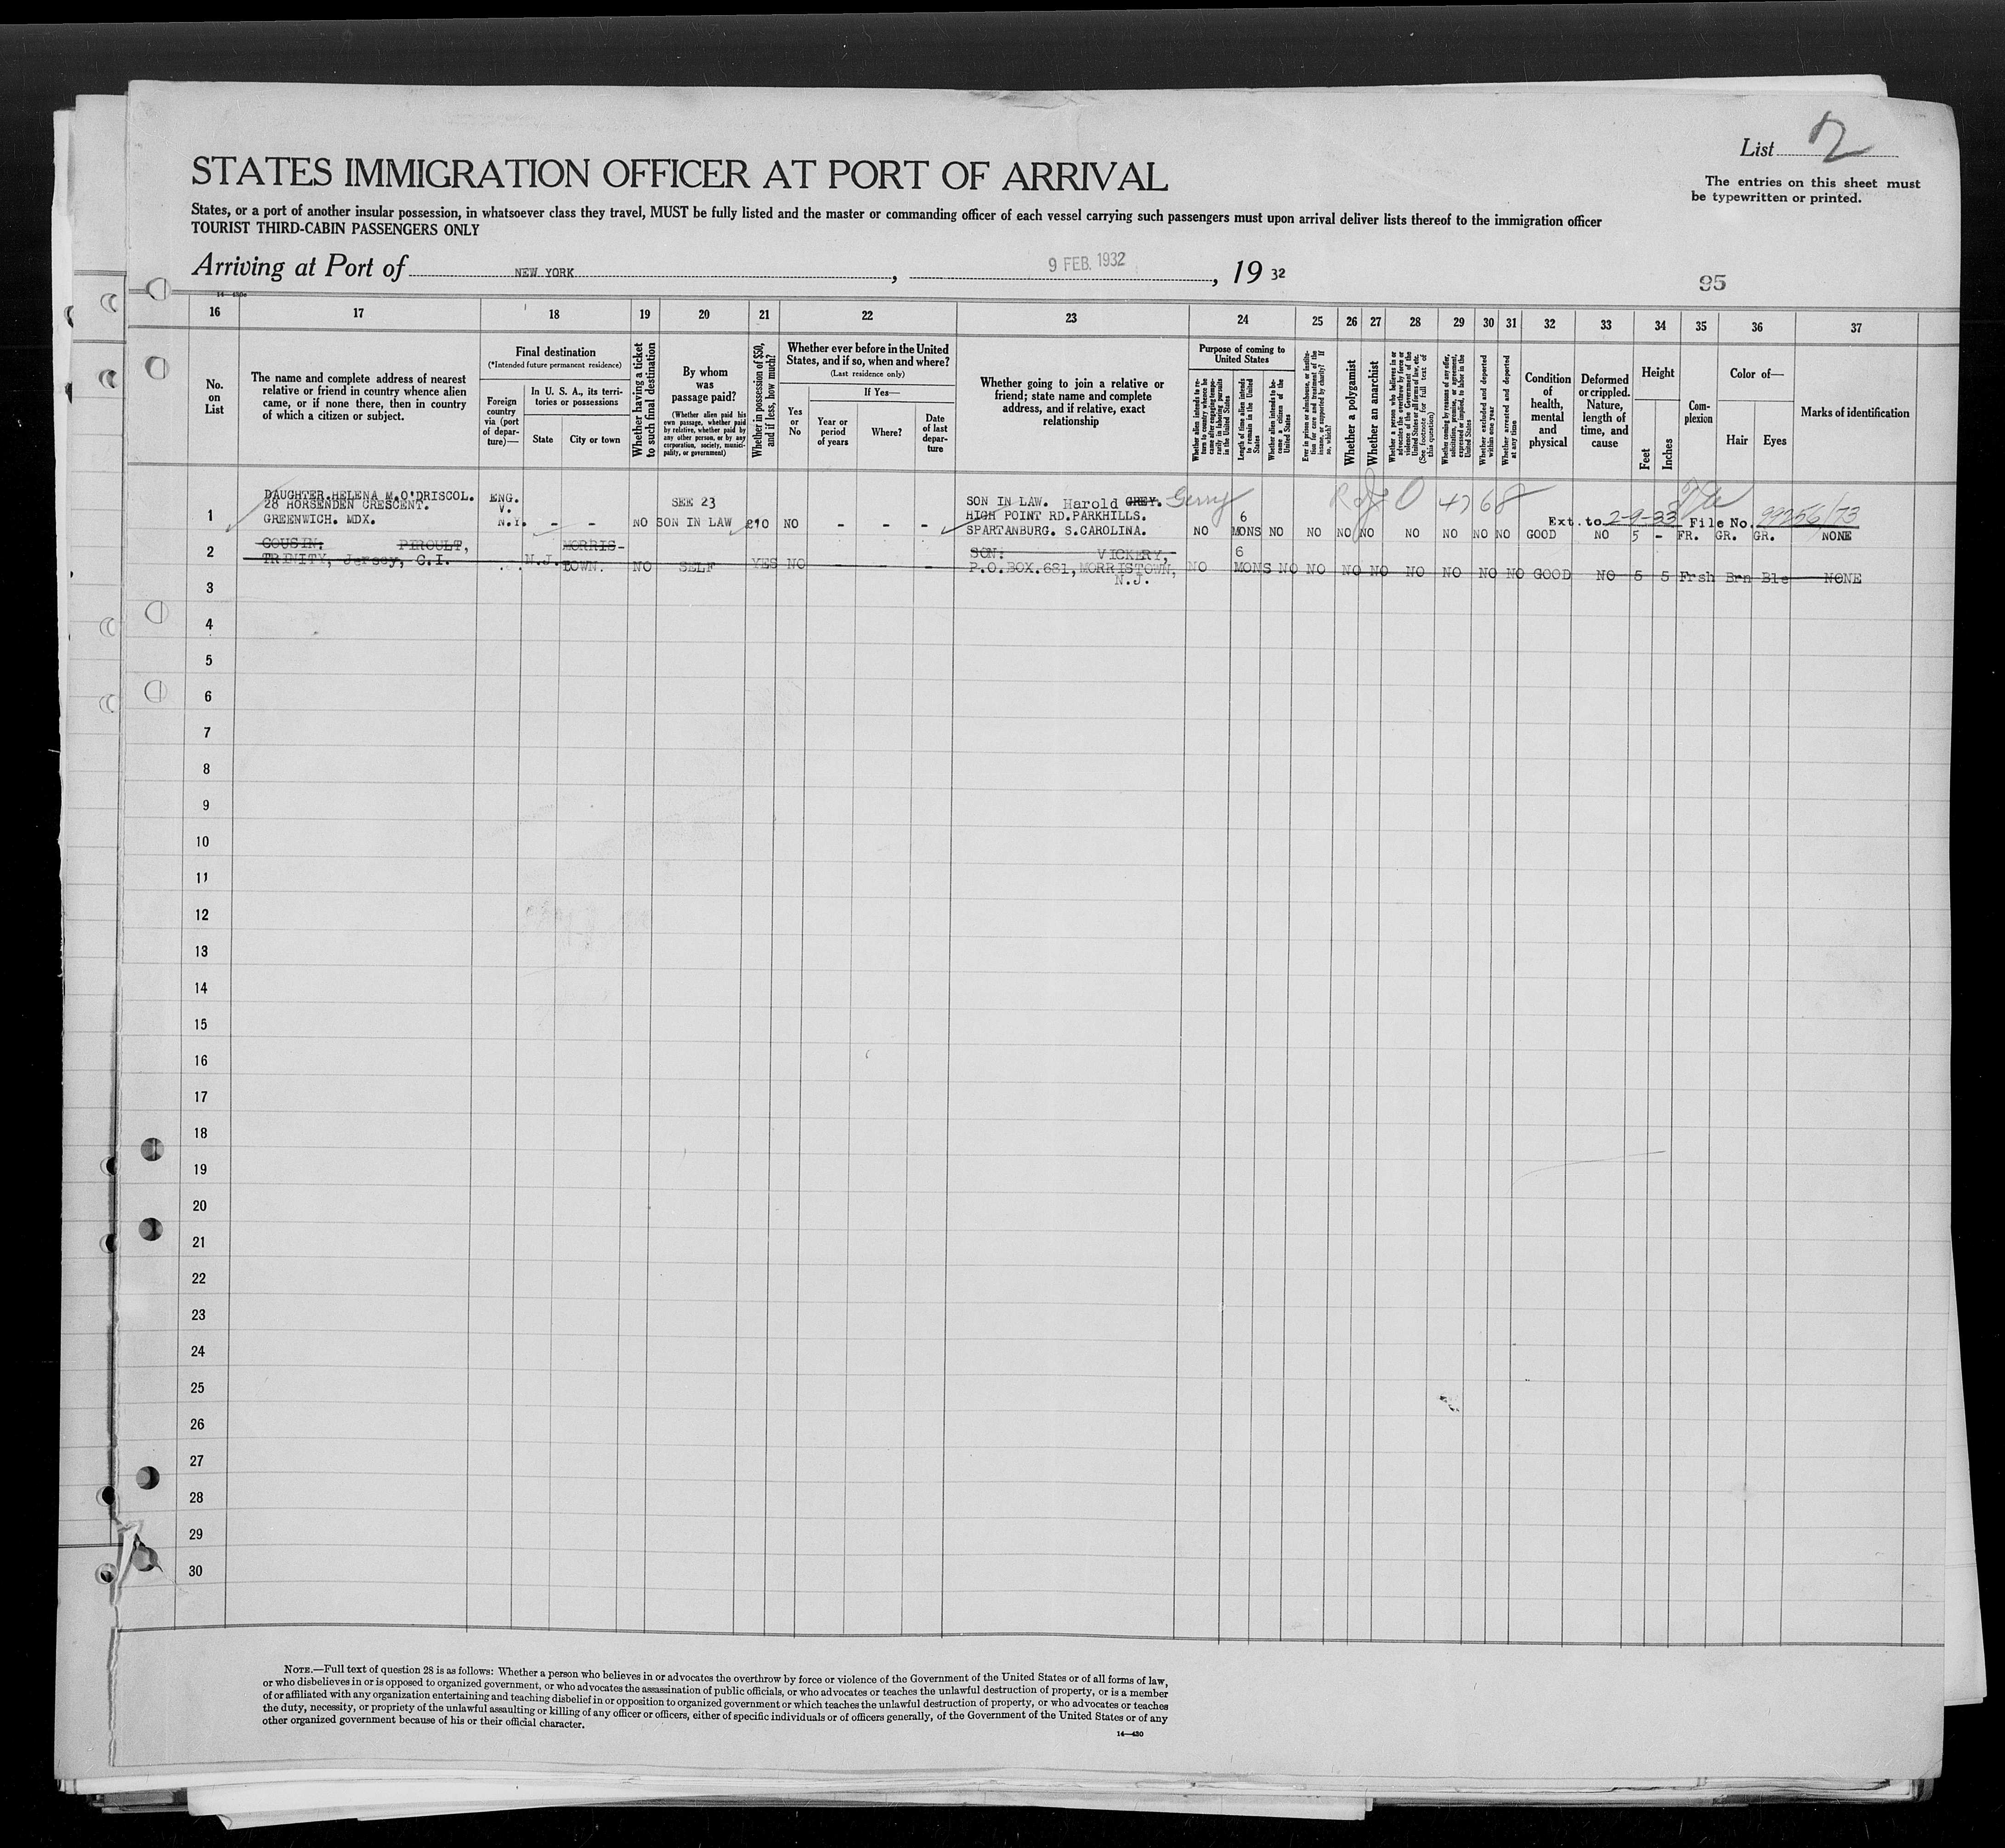 List 2
The entries on this sheet must
be typewritten or printed.
STATES IMMIGRATION OFFICER AT PORT OF ARRIVAL
States, or a port of another insular possession, in whatsoever class they travel, MUST be fully listed and the master or commanding officer of each vessel carrying such passengers must upon arrival deliver lists thereof to the immigration officer
TOURIST THIRD-CABIN PASSENGERS ONLY
Arriving at Port of NEW YORK, 9 FEB. 1932, 19 32
95
14—430c
16 17 18 19 20 21 22 23 24 25 26 27 28 29 30 31 32 33 34 35 36 37
No.
on
List
The name and complete address of nearest
relative or friend in country whence alien
came, or if none there, then in country
of which a citizen or subject.
Final destination
(*Intended future permanent residence)
Foreign
country
via (port
of depar-
ture)—
In U. S. A., its terri-
tories or possessions
State
City or town
Whether having a ticket
to such final destination
By whom
was
passage paid?
(Whether alien paid his
own passage, whether paid
by relative, whether paid by
any other person, or by any
corporation, society, munici-
pality, or government)
Whether in possession of $50,
and if less, how much?
Whether ever before in the United
States, and if so, when and where?
(Last residence only)
Yes
or
No
If Yes—
Year or
period
of years
Where?
Date
of last
depar-
ture
Whether going to join a relative or
friend; state name and complete
address, and if relative, exact
relationship
Purpose of coming to
United States
Whether alien intends to re-
turn to country whence he
came after engaging tempo-
rarily in laboring pursuits
in the United States
Length of time alien intends
to remain in the United
States
Whether alien intends to be-
come a citizen of the
United States
Ever in prison or almshouse, or institu-
tion for care and treatment of the
insane, or supported by charity? If
so, which?
Whether a polygamist
Whether an anarchist
Whether a person who believes in or
advocates the overthrow by force or
violence of the Government of the
United States or all forms of law, etc.
(See footnote for full text of
this question)
Whether coming by reasons of any offer,
solicitation, promise, or agreement,
expressed or implied, to labor in the
United States
Whether excluded and deported
within one year
Whether arrested and deported
at any time
Condition
of
health,
mental
and
physical
Deformed
or crippled.
Nature,
length of
time, and
cause
Height
Feet
Inches
Com-
plexion
Color of—
Hair
Eyes
Marks of identification
1
DAUGHTER.HELENA M.O'DRISCOL.
28 HORSENDEN CRESCENT.
GREENWICH. MDX.
ENG.
V.
N.Y. - -
NO
SEE 23
SON IN LAW
£10 NO - - -
SON IN LAW. Harold GREY. Gerry
HIGH POINT RD.PARKHILLS.
SPARTANBURG. S.CAROLINA.
NO 6 MONS NO NO NO NO NO NO NO NO GOOD NO 5 - FR. GR. GR. NONE
Ext. to 2-9-33 File No. 99256/73
2
COUSIN: PIROULT,
TRINITY, Jersey, C.I.
N.J. MORRIS-
TOWN.
NO SELF YES NO - - -
SON: VICKERY,
P.O.BOX.681,MORRISTOWN,
N.J.
NO 6 MONS NO NO NO NO NO NO NO NO GOOD NO 5 5 Frsh Brn Ble NONE
3
4
5
6
7
8
9
10
11
12
13
14
15
16
17
18
19
20
21
22
23
24
25
26
27
28
29
30
NOTE.—Full text of question 28 is as follows: Whether a person who believes in or advocates the overthrow by force or violence of the Government of the United States or of all forms of law,
or who disbelieves in or is opposed to organized government, or who advocates the assassination of public officials, or who advocates or teaches the unlawful destruction of property, or is a member
of or affiliated with any organization entertaining and teaching disbelief in or opposition to organized government or which teaches the unlawful destruction of property, or who advocates or teaches
the duty, necessity, or propriety of the unlawful assaulting or killing of any officer or officers, either of specific individuals or of officers generally, of the Government of the United States or of any
other organized government because of his or their official character.
14—430